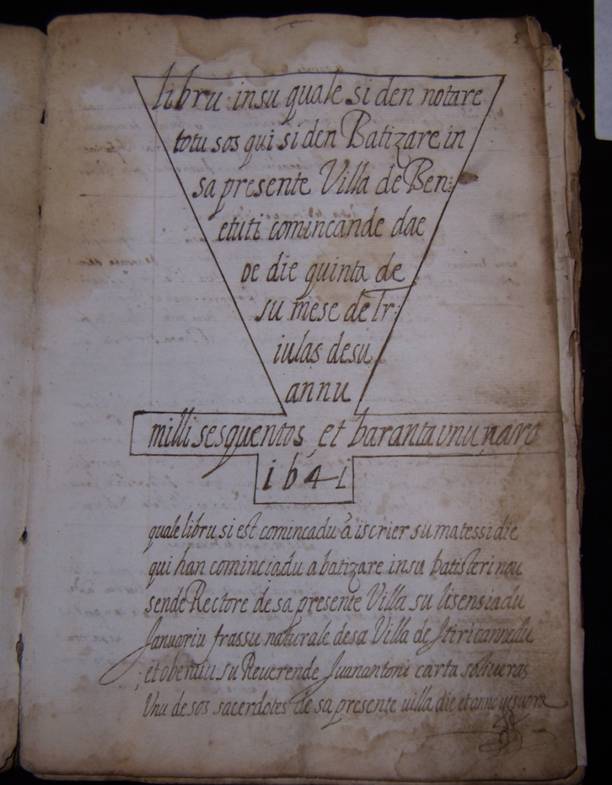 libru insu quale si den notare
totu sos qui si den Batizare in
sa presente Villa de Ben:
etuti comincande dae
oe die quinta de
su mese de Tr:
iulas desu
annu
milli sesquentos, et baranta unu, naro
1641
quale libru si est comincadu à iscrier su matessi die
qui han cominciadu a batizare insu batisteri nou
sende Rectore de sa presente Villa su lisensiadu
Januariu frassu naturale desa Villa de
su Reverende Juanantoni carta soliueras
Unu de sos sacerdotes de sa presente uilla die et anno